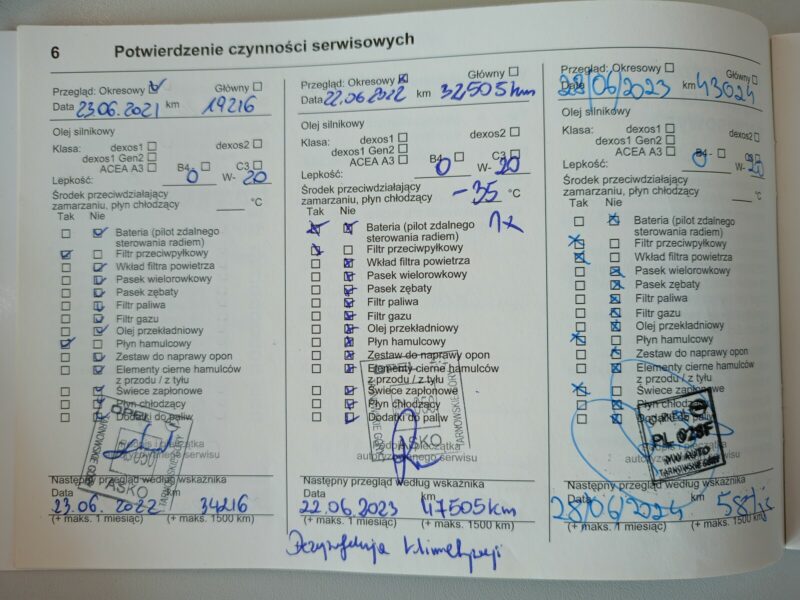 6 Potwierdzenie czynności serwisowych
Przegląd: Okresowy Główny
Data 23.06.2021 km 19216
Olej silnikowy
Klasa: dexos1 dexos2
dexos1 Gen2
ACEA A3 B4- C3
Lepkość: 0 W- 20
Środek przeciwdziałający
zamarzaniu, płyn chłodzący °C
Tak Nie
Bateria (pilot zdalnego
sterowania radiem)
Filtr przeciwpyłkowy
Wkład filtra powietrza
Pasek wielorowkowy
Pasek zębaty
Filtr paliwa
Filtr gazu
Olej przekładniowy
Płyn hamulcowy
Zestaw do naprawy opon
Elementy cierne hamulców
z przodu / z tyłu
Świece zapłonowe
Płyn chłodzący
Dodatki do paliw
OPEL
TARNOWSKIE GÓRY
ASKO
Następny przegląd według wskaźnika
Data km
23.06.2022 34216
(+ maks. 1 miesiąc) (+ maks. 1500 km)
Przegląd: Okresowy Główny
Data 22.06.2022 km 32505 km
Olej silnikowy
Klasa: dexos1 dexos2
dexos1 Gen2
ACEA A3 B4- C3
Lepkość: 0 W- 20
Środek przeciwdziałający
zamarzaniu, płyn chłodzący -35 °C
Tak Nie
Bateria (pilot zdalnego 1x
sterowania radiem)
Filtr przeciwpyłkowy
Wkład filtra powietrza
Pasek wielorowkowy
Pasek zębaty
Filtr paliwa
Filtr gazu
Olej przekładniowy
Płyn hamulcowy
Zestaw do naprawy opon
Elementy cierne hamulców
z przodu / z tyłu
Świece zapłonowe
Płyn chłodzący
Dodatki do paliw
TARNOWSKIE GÓRY
ASKO
Następny przegląd według wskaźnika
Data km
22.06.2023 47505 km
(+ maks. 1 miesiąc) (+ maks. 1500 km)
Przegląd: Okresowy Główny
Data 28/06/2023 km 43024
Olej silnikowy
Klasa: dexos1 dexos2
dexos1 Gen2
ACEA A3 B4- C3
Lepkość: 0 W- 20
Środek przeciwdziałający
zamarzaniu, płyn chłodzący °C
Tak Nie
Bateria (pilot zdalnego
sterowania radiem)
Filtr przeciwpyłkowy
Wkład filtra powietrza
Pasek wielorowkowy
Pasek zębaty
Filtr paliwa
Filtr gazu
Olej przekładniowy
Płyn hamulcowy
Zestaw do naprawy opon
Elementy cierne hamulców
z przodu / z tyłu
Świece zapłonowe
Płyn chłodzący
Dodatki do paliw
PL 029F
MM AUTO
TARNOWSKIE GÓRY
Następny przegląd według wskaźnika
Data km
28/06/2024
(+ maks. 1 miesiąc) (+ maks. 1500 km)